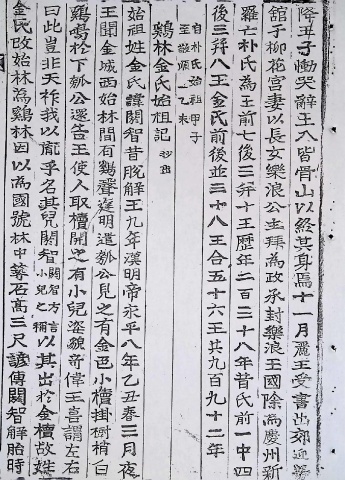 降王子慟哭辭王入皆骨山以終其身焉十一月麗王受書出郊迎勞
舘于柳花宮妻以長女樂浪公主拜為政承封樂浪王國除為慶州新
羅亡朴氏為王前七後三并十王歷年二百三十八年昔氏前一中四
後三并八王金氏前後並三十八王合五十六王共九百九十二年
自朴氏始祖甲子
至敬順乙未
鷄林金氏始祖記
始祖姓金氏諱閼智昔脫解王九年漢明帝永平八年乙丑春三月夜
王聞金城西始林間有鷄聲遲明遣瓠公見之有金色小櫝掛樹梢白
鷄鳴於下瓠公還告王使人取櫝開之有小兒姿貌奇偉王喜謂左右
曰此豈非天祚我以胤乎名其兒閼智閼智方言小兒之稱以其出於金櫝故姓
金氏改始林為鷄林因以為國號林中築石高三尺諺傳閼智解胎時